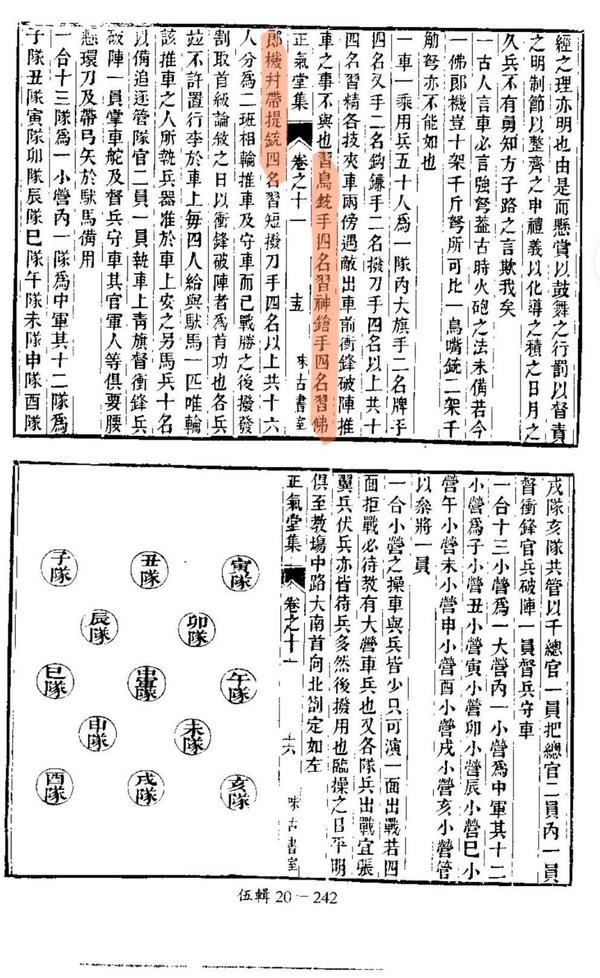 經之理亦明也由是而懸賞以鼓舞之行罰以督責
之明制節以整齊之申禮義以化導之積之日月之
久兵不有勇知方子路之言欺我矣
一古人言車必言強弩蓋古時火砲之法未備若今
一佛郎機豈十架千斤弩所可比一鳥嘴銃二架千
觔弩亦不能如也
一車一乘用兵五十人為一隊內大旗手二名牌手
四名叉手二名鈎鐮手二名撥刀手四名以上共十
四名習精各技夾車兩傍遇敵出車前衝鋒破陣推
車之事不與也習鳥銃手四名習神鎗手四名習佛
正氣堂集 卷之十一 十五 味古書室
郎機并帶提銃四名習短撥刀手四名以上共十六
人分為二班相輪推車及守車而已戰勝之後撥發
割取首級論敘之日以衝鋒破陣者為首功也各兵
並不許置行李於車上每四人給與馱馬一匹唯輪
該推車之人所執兵器准於車上安之另馬兵十名
以備追逐管隊官二員一員執車上靑旗督衝鋒兵
破陣一員掌車舵及督兵守車其官軍人等俱要腰
懸環刀及帶弓矢於馱馬備用
一合十三隊為一小營內一隊為中軍其十二隊為
子隊丑隊寅隊卯隊辰隊巳隊午隊未隊申隊酉隊
戌隊亥隊共管以千總官一員把總官二員內一員
督衝鋒官兵破陣一員督兵守車
一合十三小營為一大營內一小營為中軍其十二
小營為子小營丑小營寅小營卯小營辰小營巳小
營午小營未小營申小營酉小營戌小營亥小營管
以參將一員
一合小營之操車與兵皆少只可演一面出戰若四
面拒戰必待教有大營車兵也又各隊兵出戰宜張
翼兵伏兵亦皆待兵多然後撥用也臨操之日平明
俱至教場中路大南首向北劄定如左
正氣堂集 卷之十一 十六 味古書室
寅隊 丑隊 子隊
卯隊 辰隊
午隊 中軍隊 巳隊
未隊 申隊
亥隊 戌隊 酉隊
伍輯 20－242